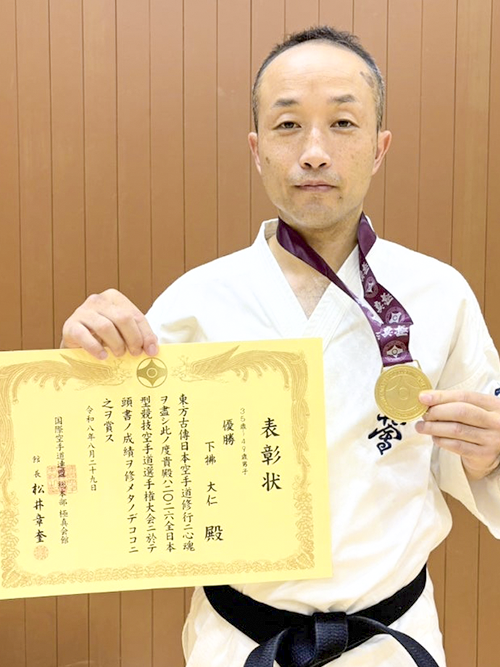 表彰状
35歳~49歳男子
優勝
下拂 大仁 殿
東方古傳日本空手道修行ニ心魂
ヲ盡シ此ノ度貴殿ハ二〇二六全日本
型競技空手道選手権大会ニ於テ
頭書ノ成績ヲ修メタノデココニ
之ヲ賞ス
令和八年八月二十九日
国際空手道連盟 総本部 極真会館
館長 松井章奎